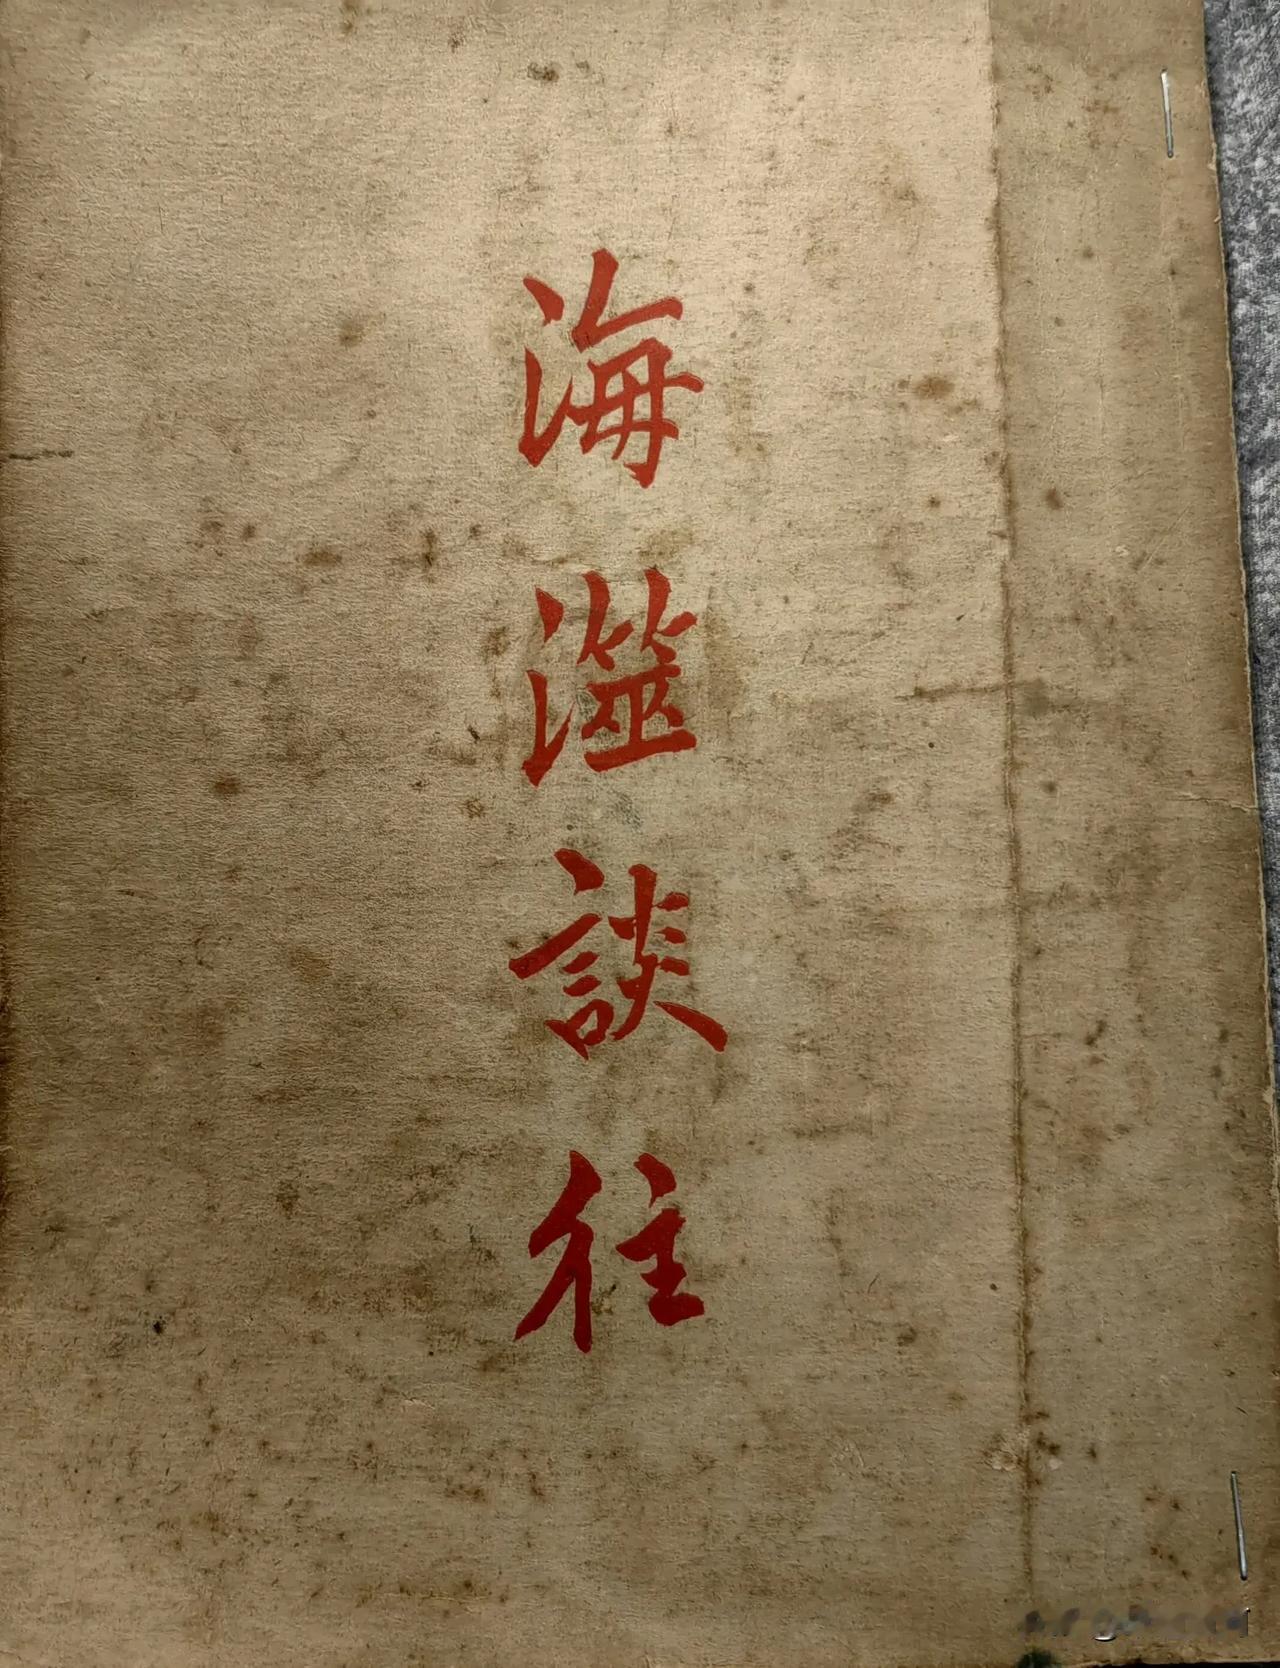 海澨談往